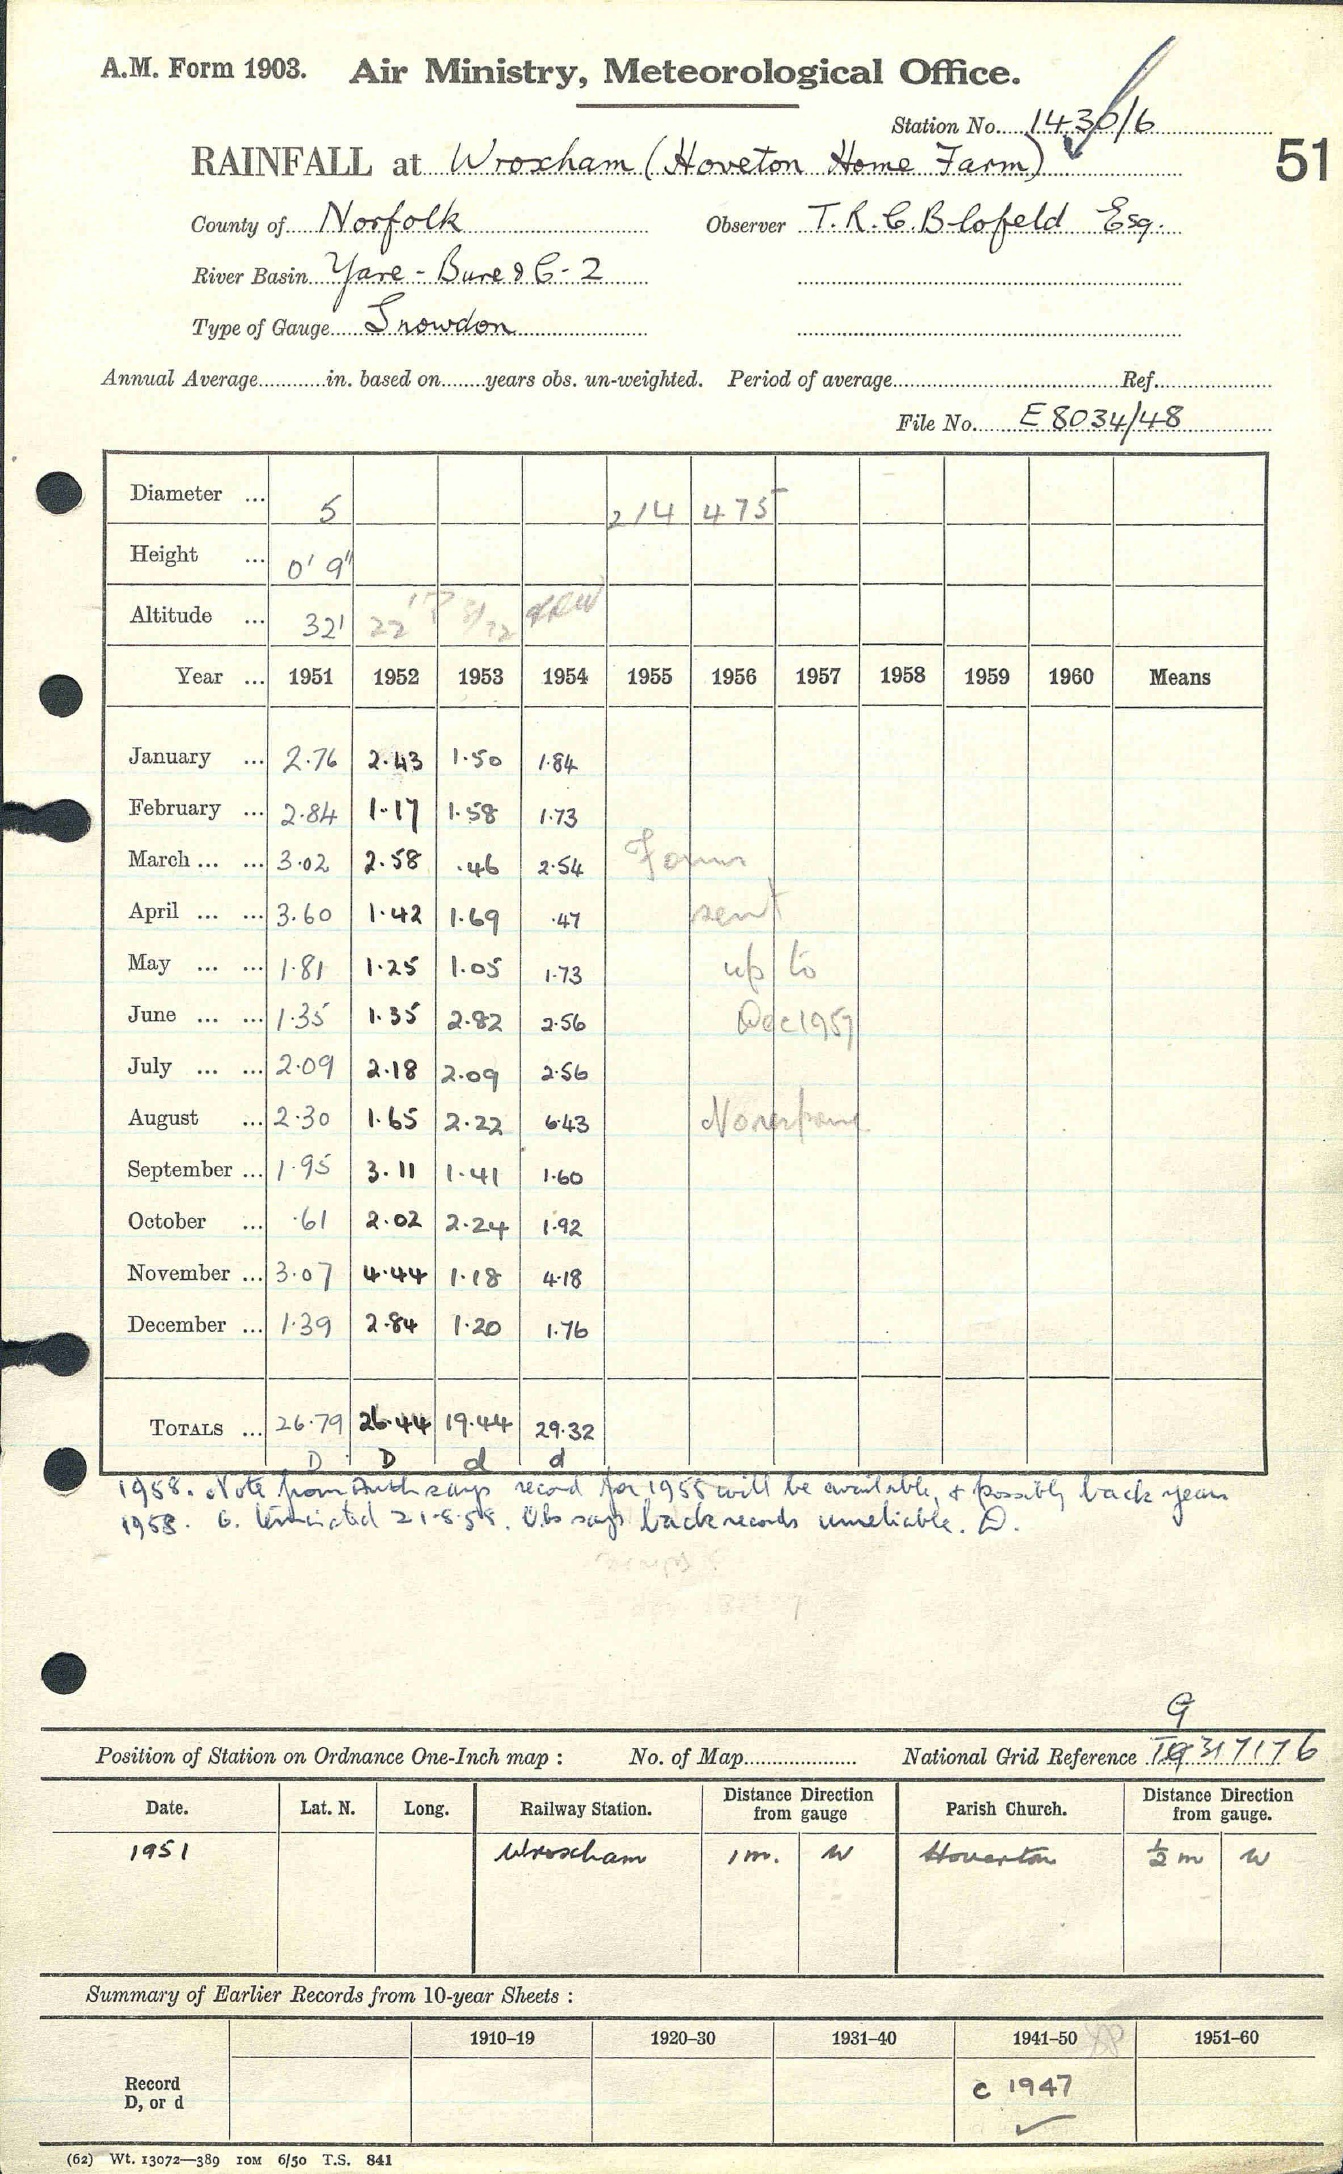 A.M. Form 1903. Air Ministry, Meteorological Office.
Station No. 1430/6
RAINFALL at Wroxham (Hoveton Home Farm)
51
County of Norfolk Observer T.R.C. Blofeld Esq.
River Basin Yare - Bure & C - 2
Type of Gauge Snowdon
Annual Average in. based on years obs. un-weighted. Period of average Ref.
File No. E 8034/48
Diameter ... 5 214 475
Height ... 0' 9"
Altitude ... 32' 22'
Year ... 1951 1952 1953 1954 1955 1956 1957 1958 1959 1960 Means
January ... 2.76 2.43 1.50 1.84
February ... 2.84 1.17 1.58 1.73
March ... ... 3.02 2.58 .46 2.54 Forms
April ... ... 3.60 1.42 1.69 .47 sent
May ... ... 1.81 1.25 1.05 1.73 up to
June ... ... 1.35 1.35 2.82 2.56 Dec 1957
July ... ... 2.09 2.18 2.09 2.56
August ... 2.30 1.65 2.22 6.43
September ... 1.95 3.11 1.41 1.60
October ... .61 2.02 2.24 1.92
November ... 3.07 4.44 1.18 4.18
December ... 1.39 2.84 1.20 1.76
TOTALS ... 26.79 26.44 19.44 29.32
D D d d
1958. Note from says record for 1955 will be available, & possibly back years
1958. G. 21-8-58. Obs says back records unreliable. D.
9
Position of Station on Ordnance One-Inch map : No. of Map National Grid Reference 317176
Date. Lat. N. Long. Railway Station. Distance Direction from gauge Parish Church. Distance Direction from gauge.
1951 Wroxham 1 m. W Hoverton ½ m W
Summary of Earlier Records from 10-year Sheets :
1910–19 1920–30 1931–40 1941–50 1951–60
Record D, or d c 1947
(62) Wt. 13072—389 10M 6/50 T.S. 841